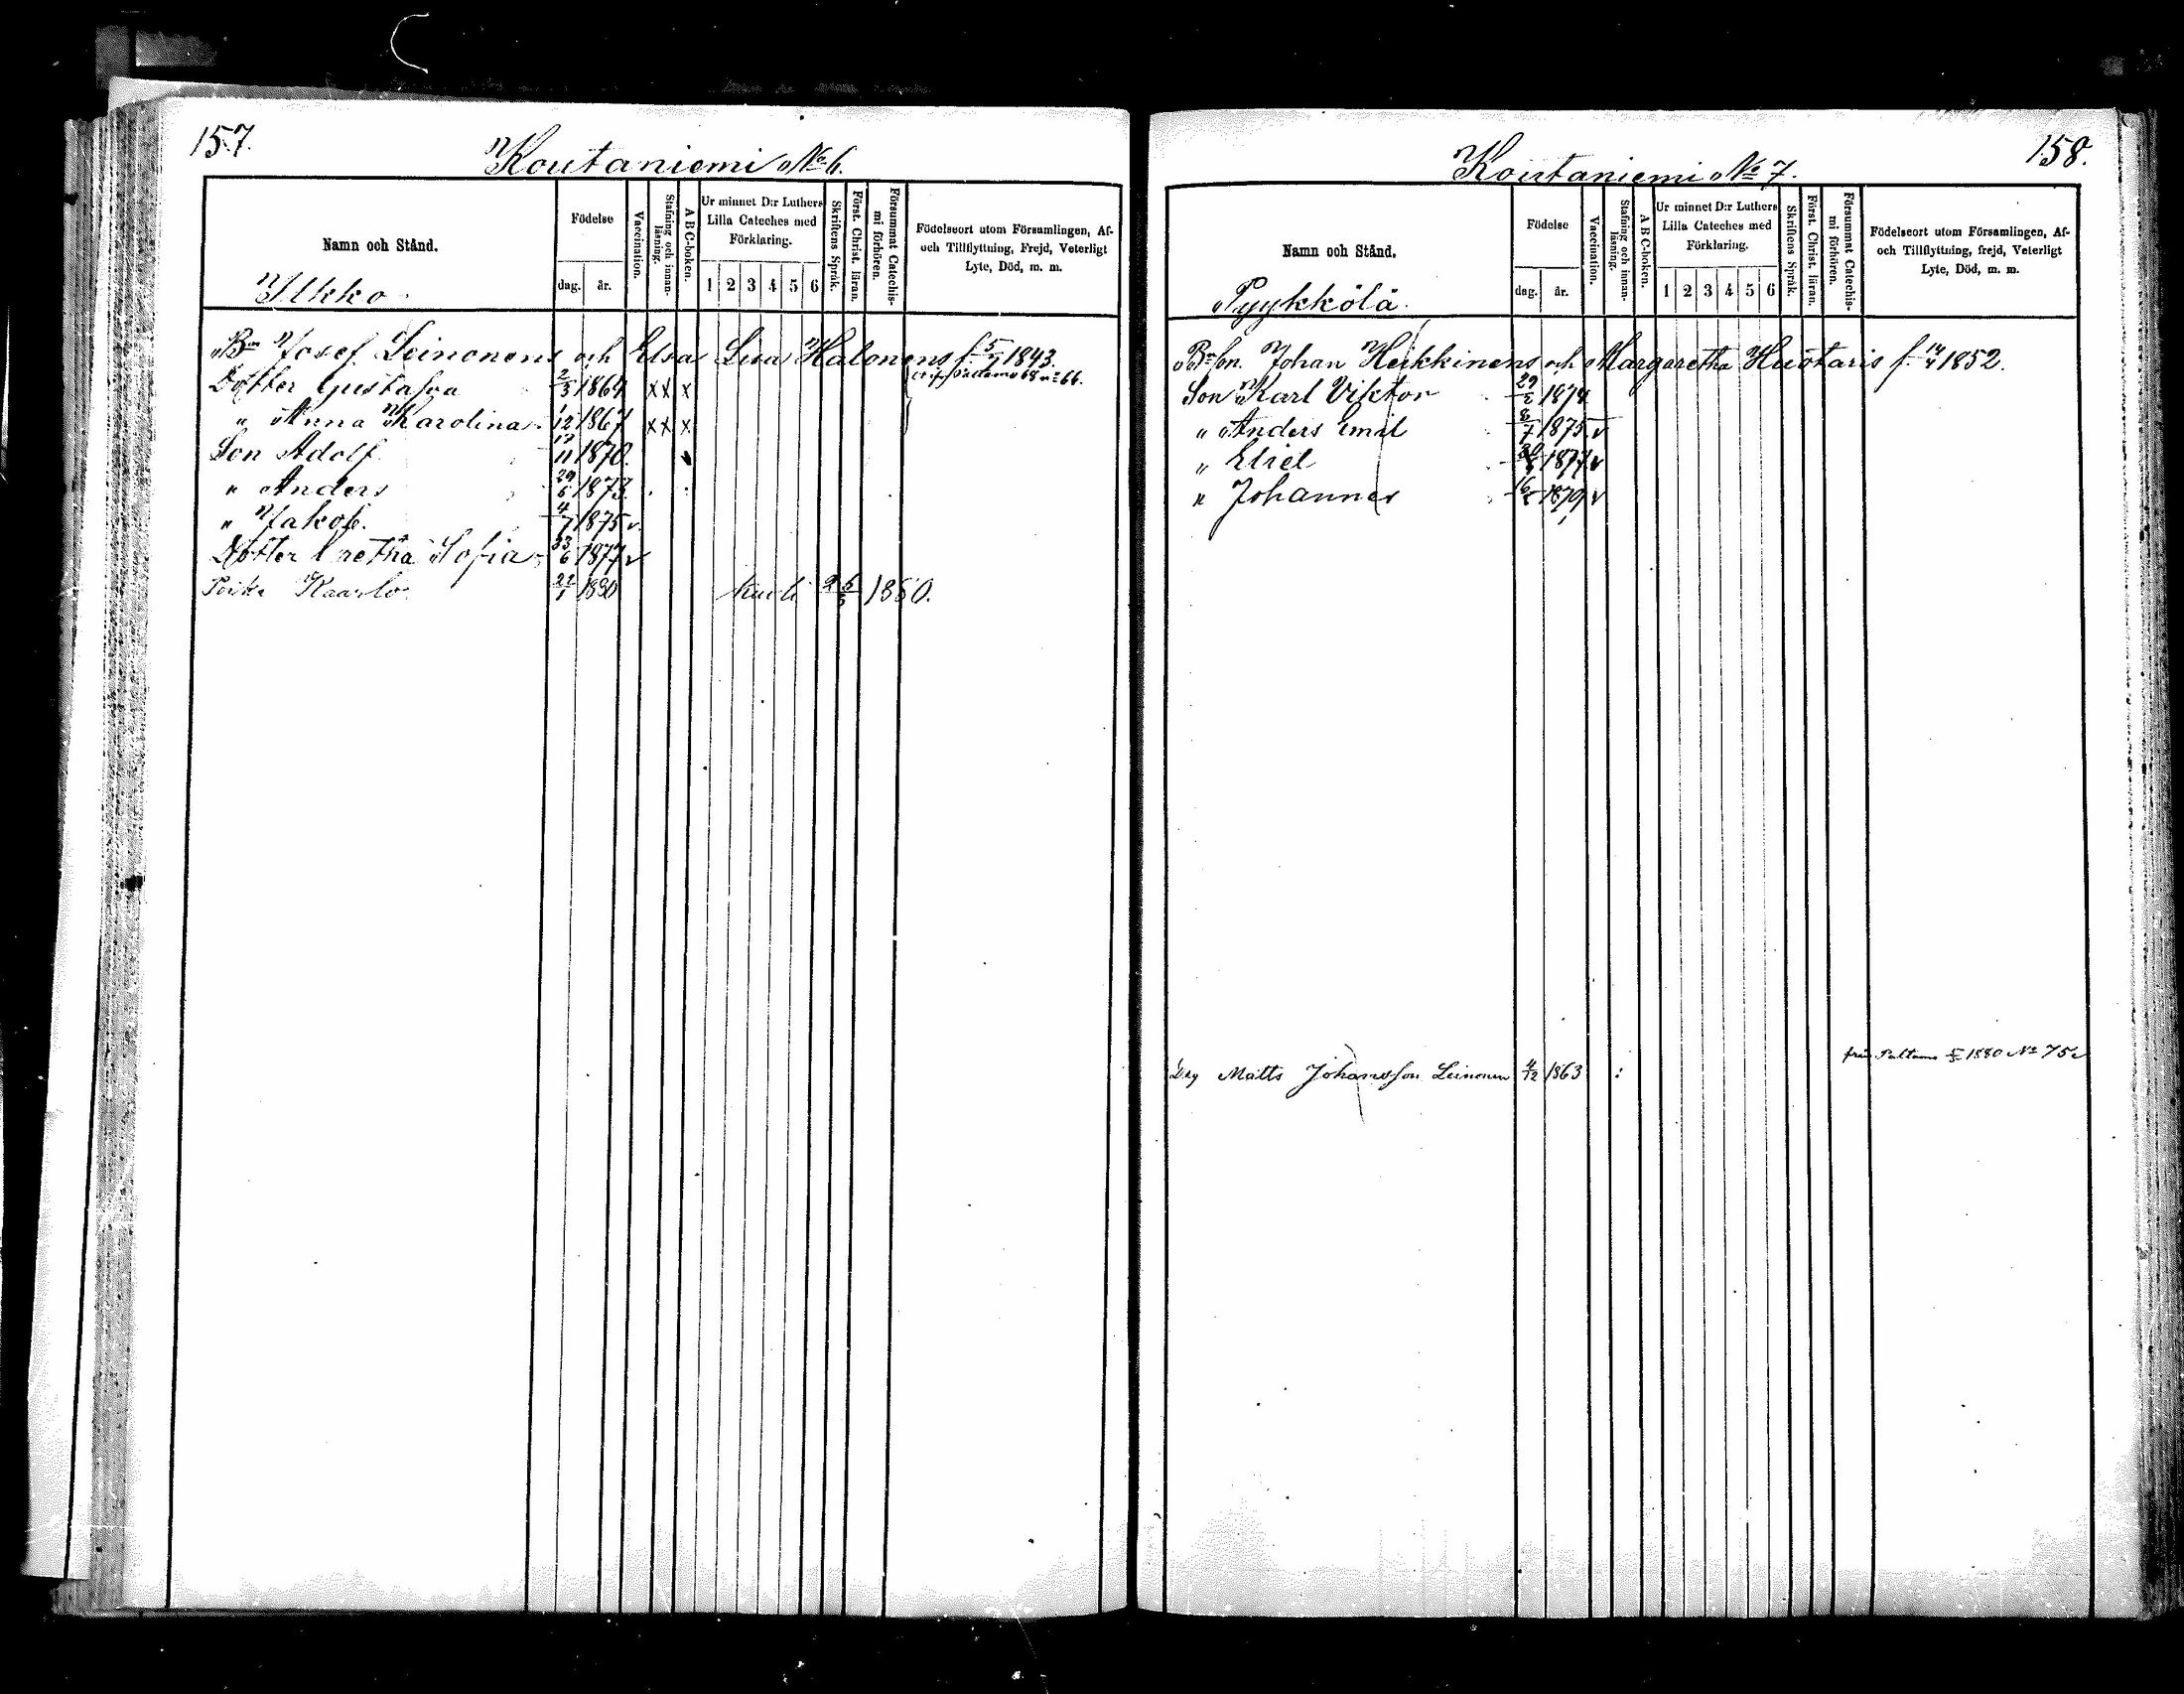 157.
Koutaniemi No 6.
Namn och Stånd.
Födelse
dag.
år.
Vaccination.
Stafning och innanläsning.
A B C-boken.
Ur minnet D:r Luthers Lilla Cateches med Förklaring.
1 2 3 4 5 6
Skriftens Språk.
Först. Christ. läran.
Försummat Catechismi förhören.
Födelseort utom Församlingen, Af- och Tillflyttning, Frejd, Veterligt Lyte, Död, m. m.
Ylkko
Bn Josef Leinonens och Elsa Lisa Halonens f. 1843.
Dotter Gustafva 2/3 1864 xx x
" Anna Karolina 1/12 1867 xx x
Son Adolf 17/11 1870.
" Anders 29/6 1873.
" Jakob. 4/7 1875 v.
Dotter Gretha Sofia 1877 v
Poika Kaarlo 22/1 1880 kuoli 1880.
158.
Koutaniemi No 7.
Namn och Stånd.
Födelse
dag.
år.
Vaccination.
Stafning och innanläsning.
A B C-boken.
Ur minnet D:r Luthers Lilla Cateches med Förklaring.
1 2 3 4 5 6
Skriftens Språk.
Först. Christ. läran.
Försummat Catechismi förhören.
Födelseort utom Församlingen, Af- och Tillflyttning, frejd, Veterligt Lyte, Död, m. m.
Pyykkölä.
Bn Son. Johan Heikkinens och Margaretha Huotaris f. 1852.
Son Karl Viktor 29/3 1874
" Anders Emil 8/7 1875 v
" Eliel 1877 v
" Johannes 1879 v
från Paltamo 1880 No 75
Drg Matts Johansson Leinonen 4/12 1863 :